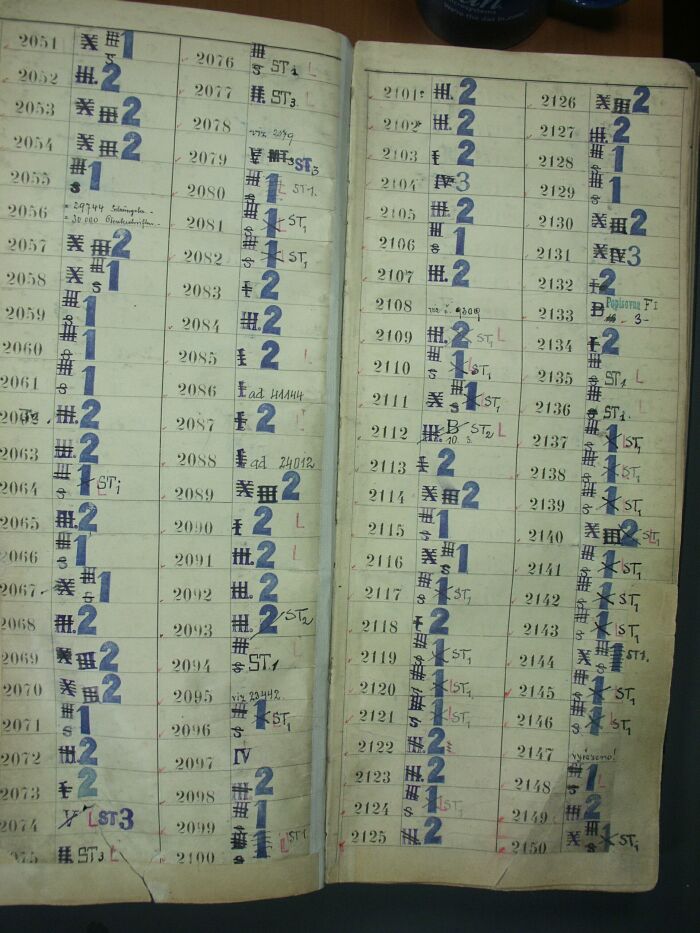 2051 X III S 1
2052 III. 2
2053 X III 2
2054 X III 2
2055 III S 1
2056 = 29744
= 30.000
2057 X III 2
2058 X III S 1
2059 III S 1
2060 III S 1
2061 III S 1
2062 III. 2
2063 III. 2
2064 III S 1 ST1 L
2065 III. 2
2066 III S 1
2067 X III S 1
2068 III. 2
2069 X III 2
2070 X III 2
2071 III S 1
2072 III. 2
2073 I 2
2074 V L ST3
2075 II. ST3 L
2076 III S ST1 L
2077 II. ST3 L
2078 viz 2079
2079 V ST3
2080 III S 1 L ST1.
2081 III S 1 L ST1
2082 III S 1 L ST1
2083 I 2
2084 III. 2
2085 I 2 L
2086 I ad 41144
2087 I 2 L
2088 I ad 24012
2089 X III 2
2090 I 2 L
2091 III. 2 L
2092 III. 2
2093 III. 2 ST2
2094 III S ST.1
2095 viz 23442.
2096 III S 1 ST1
2097 IV
2098 III 2
2099 III S 1
2100 III S 1 L ST1
2101 III. 2
2102 III. 2
2103 I 2
2104 IV 3
2105 III. 2
2106 III S 1
2107 III. 2
2108 9309
2109 III. 2 ST1 L
2110 III S 1 L ST1
2111 X III S 1 L ST1
2112 III. B ST2 L
10. 3.
2113 I 2
2114 X III 2
2115 III S 1
2116 X III S 1
2117 III S 1 ST1
2118 I 2
2119 III S 1 L ST1
2120 III S 1 L ST1
2121 III S 1 L ST1
2122 III. 2
2123 III. 2
2124 III S 1 L ST1
2125 III 2
2126 X III 2
2127 III. 2
2128 III S 1
2129 III S 1
2130 X III 2
2131 X IV 3
2132 I 2
2133 B Popisovna F I
3-
2134 I 2
2135 III S ST1 L
2136 III S ST1.
2137 III S 1 L ST1
2138 III S 1 L ST1
2139 III S 1 L ST1
2140 X III 2 L ST1
2141 III S 1 L ST1
2142 III S 1 L ST1
2143 III S 1 L ST1
2144 X III S 1 ST1.
2145 III S 1 L ST1
2146 III S 1 L ST1
2147 vyřazeno!
2148 III S 1 L
2149 III. 2
2150 X III S 1 ST1